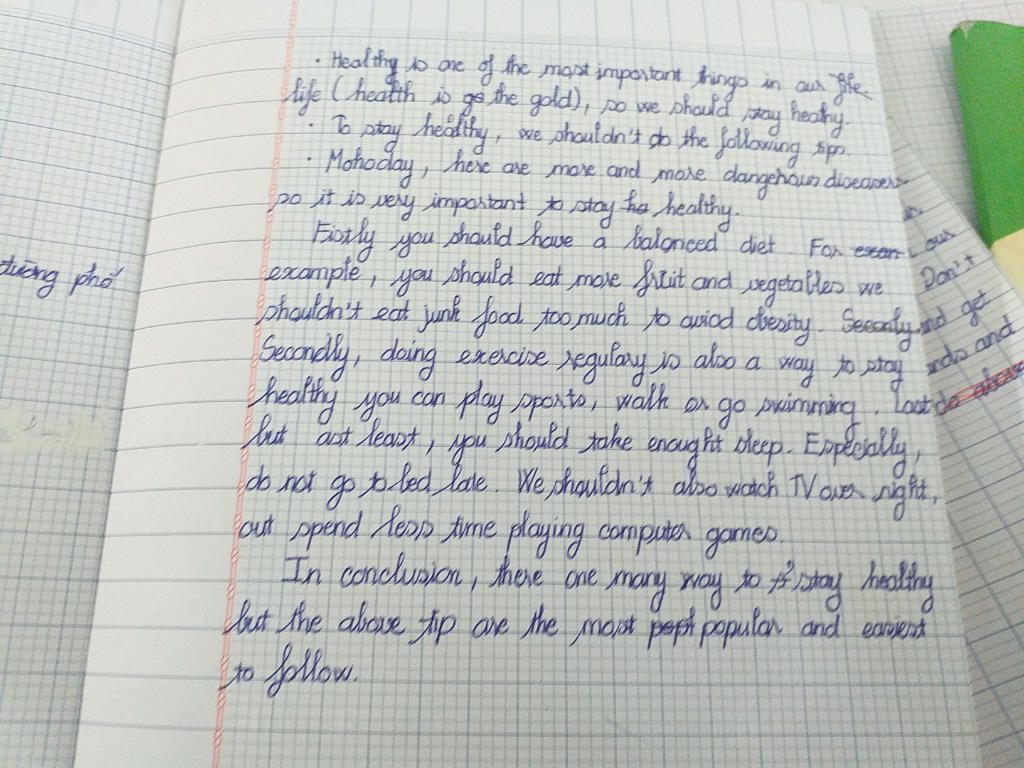 · Healthy is one of the most important things in our life
life (health is go the gold), so we should stay heathy.
· To stay healthy, we shouldn't do the following tips.
· Mohoday, here are more and more dangerous diseases
so it is very important to stay he healthy.
Fistly you should have a balanced diet. For exem
example, you should eat more fruit and vegetables we
shouldn't eat junk food too much to aviod obesity. Seconly
Secondly, doing exercise regulary is also a way to stay
healthy you can play sports, walk or go swimming. Last
but ast least, you should take enought sleep. Especially,
do not go to bed late. We shouldn't also watch TV over night,
out spend less time playing computer games.
In conclusion, there are many way to stay healthy
but the above tip are the most popular and easiest
to follow.
đường phố
our
Don't
and get
and